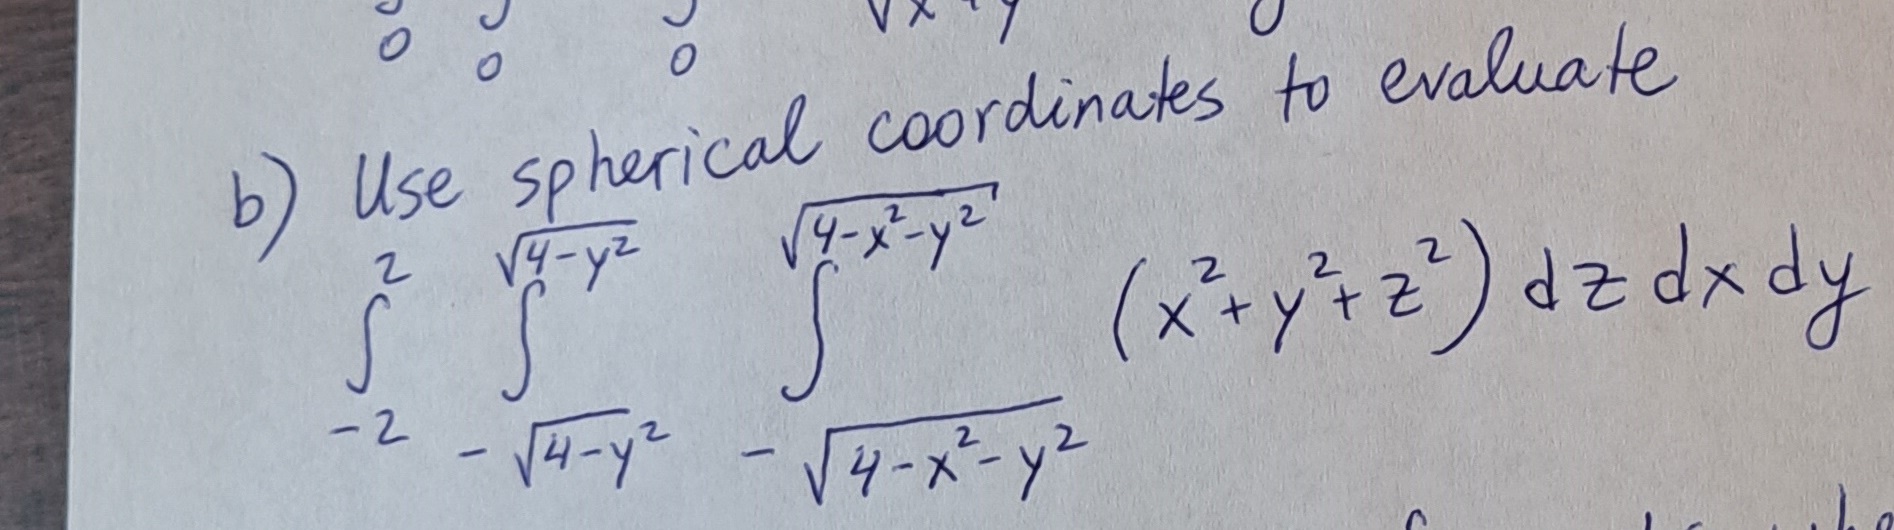 0 0 0 √x + y
b) Use spherical coordinates to evaluate
∫_{-2}^{2} ∫_{-√(4-y²)}^{√(4-y²)} ∫_{-√(4-x²-y²)}^{√(4-x²-y²)} (x²+y²+z²) dz dx dy